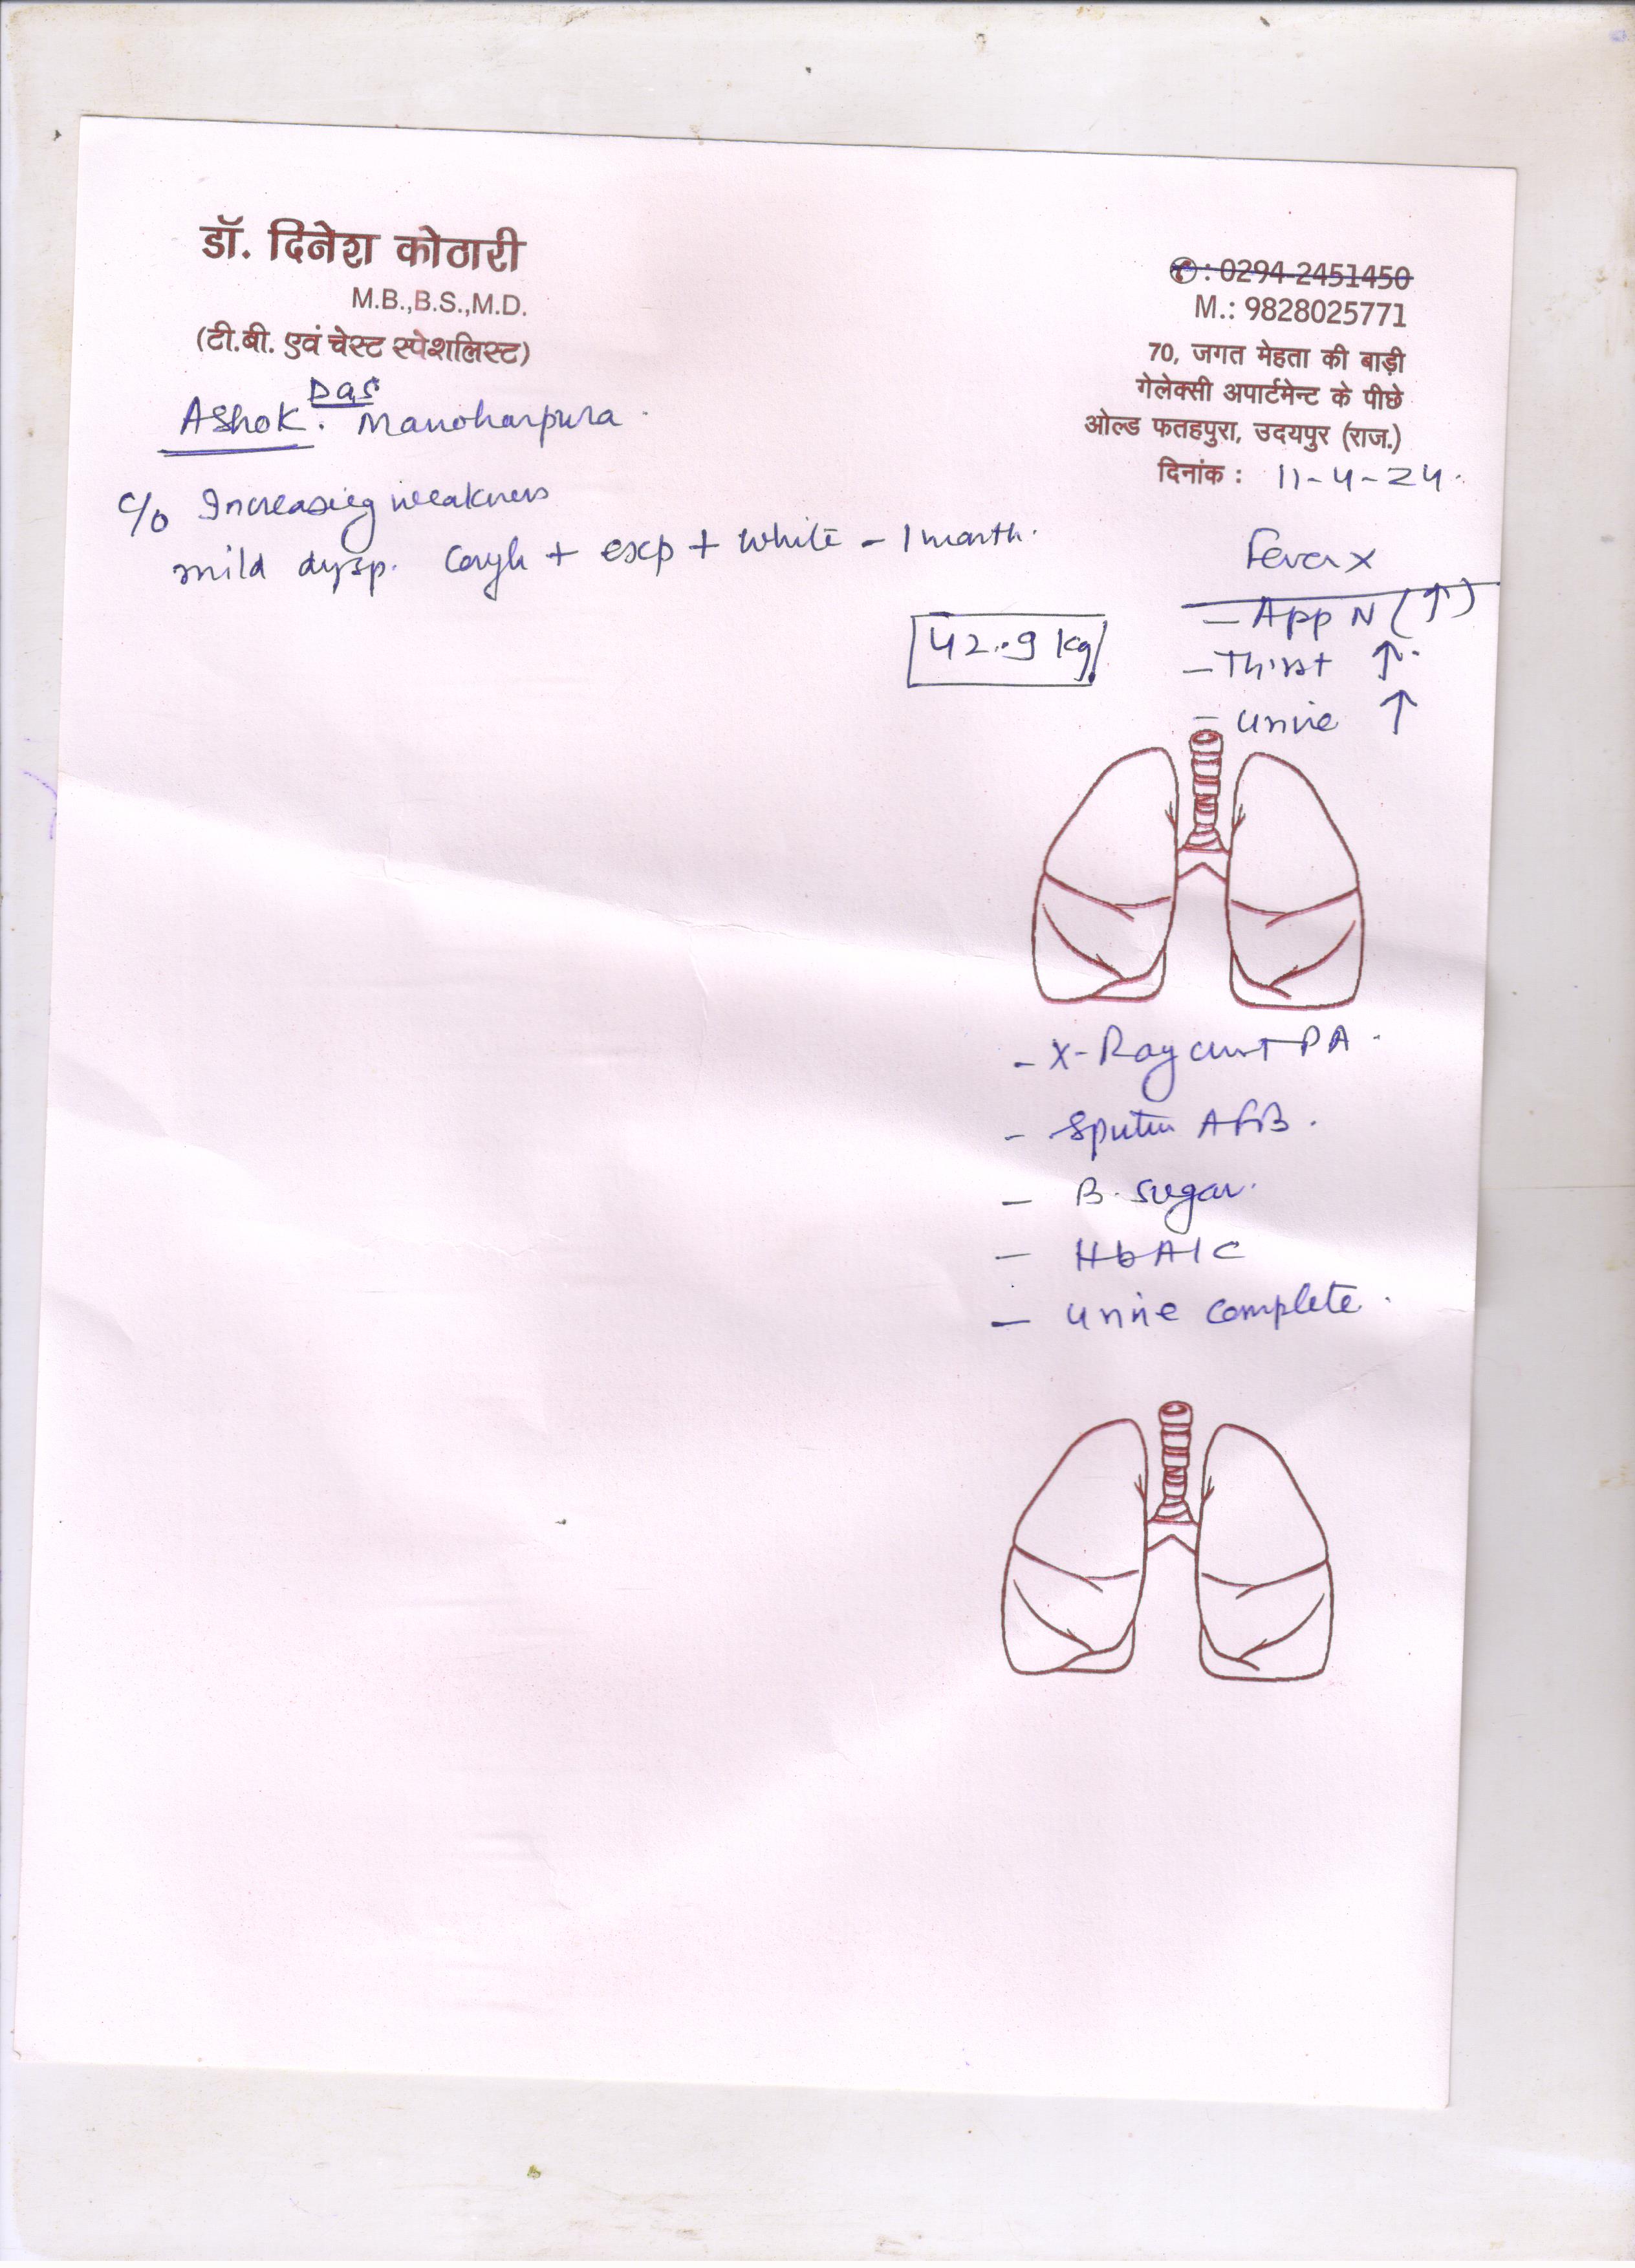 डॉ. दिनेश कोठारी
M.B.,B.S.,M.D.
(टी.बी. एवं चेस्ट स्पेशलिस्ट)
✆ : 0294-2451450
M.: 9828025771
70, जगत मेहता की बाड़ी
गेलेक्सी अपार्टमेन्ट के पीछे
ओल्ड फतहपुरा, उदयपुर (राज.)
दिनांक : 11-4-24.
Das
Ashok. Manoharpura.
c/o Increasing weakness
mild dysp. Cough + exp + white - 1 month.
Fever x
- App N (↑)
- Thirst ↑.
- urine ↑
42.9 kg
- X-Ray chest PA.
- Sputum AFB.
- B. sugar.
- HbA1C
- urine complete.